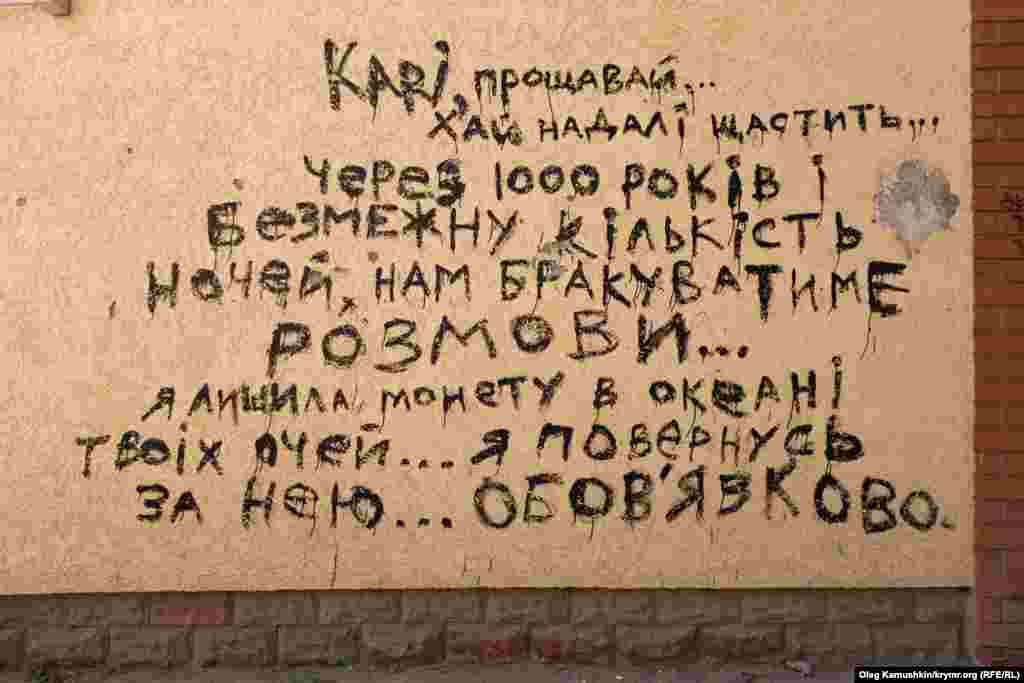 Карі, прощавай...
хай надалі щастить...
Через 1000 років і
безмежну кількість
ночей, нам бракуватиме
розмови...
я лишила монету в океані
твоїх очей... я повернусь
за нею... обов'язково.
Oleg Kamushkin/krymr.org (RFE/RL)